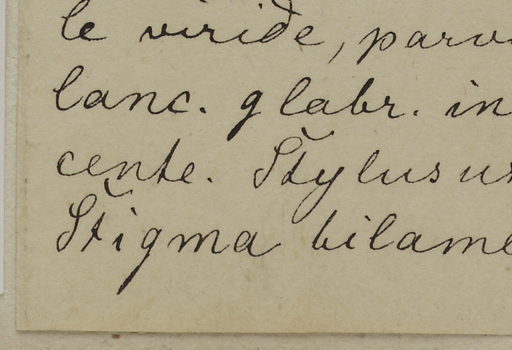 le viride, parv
lanc. glabr. in
cente. Stylus u
Stigma bilame